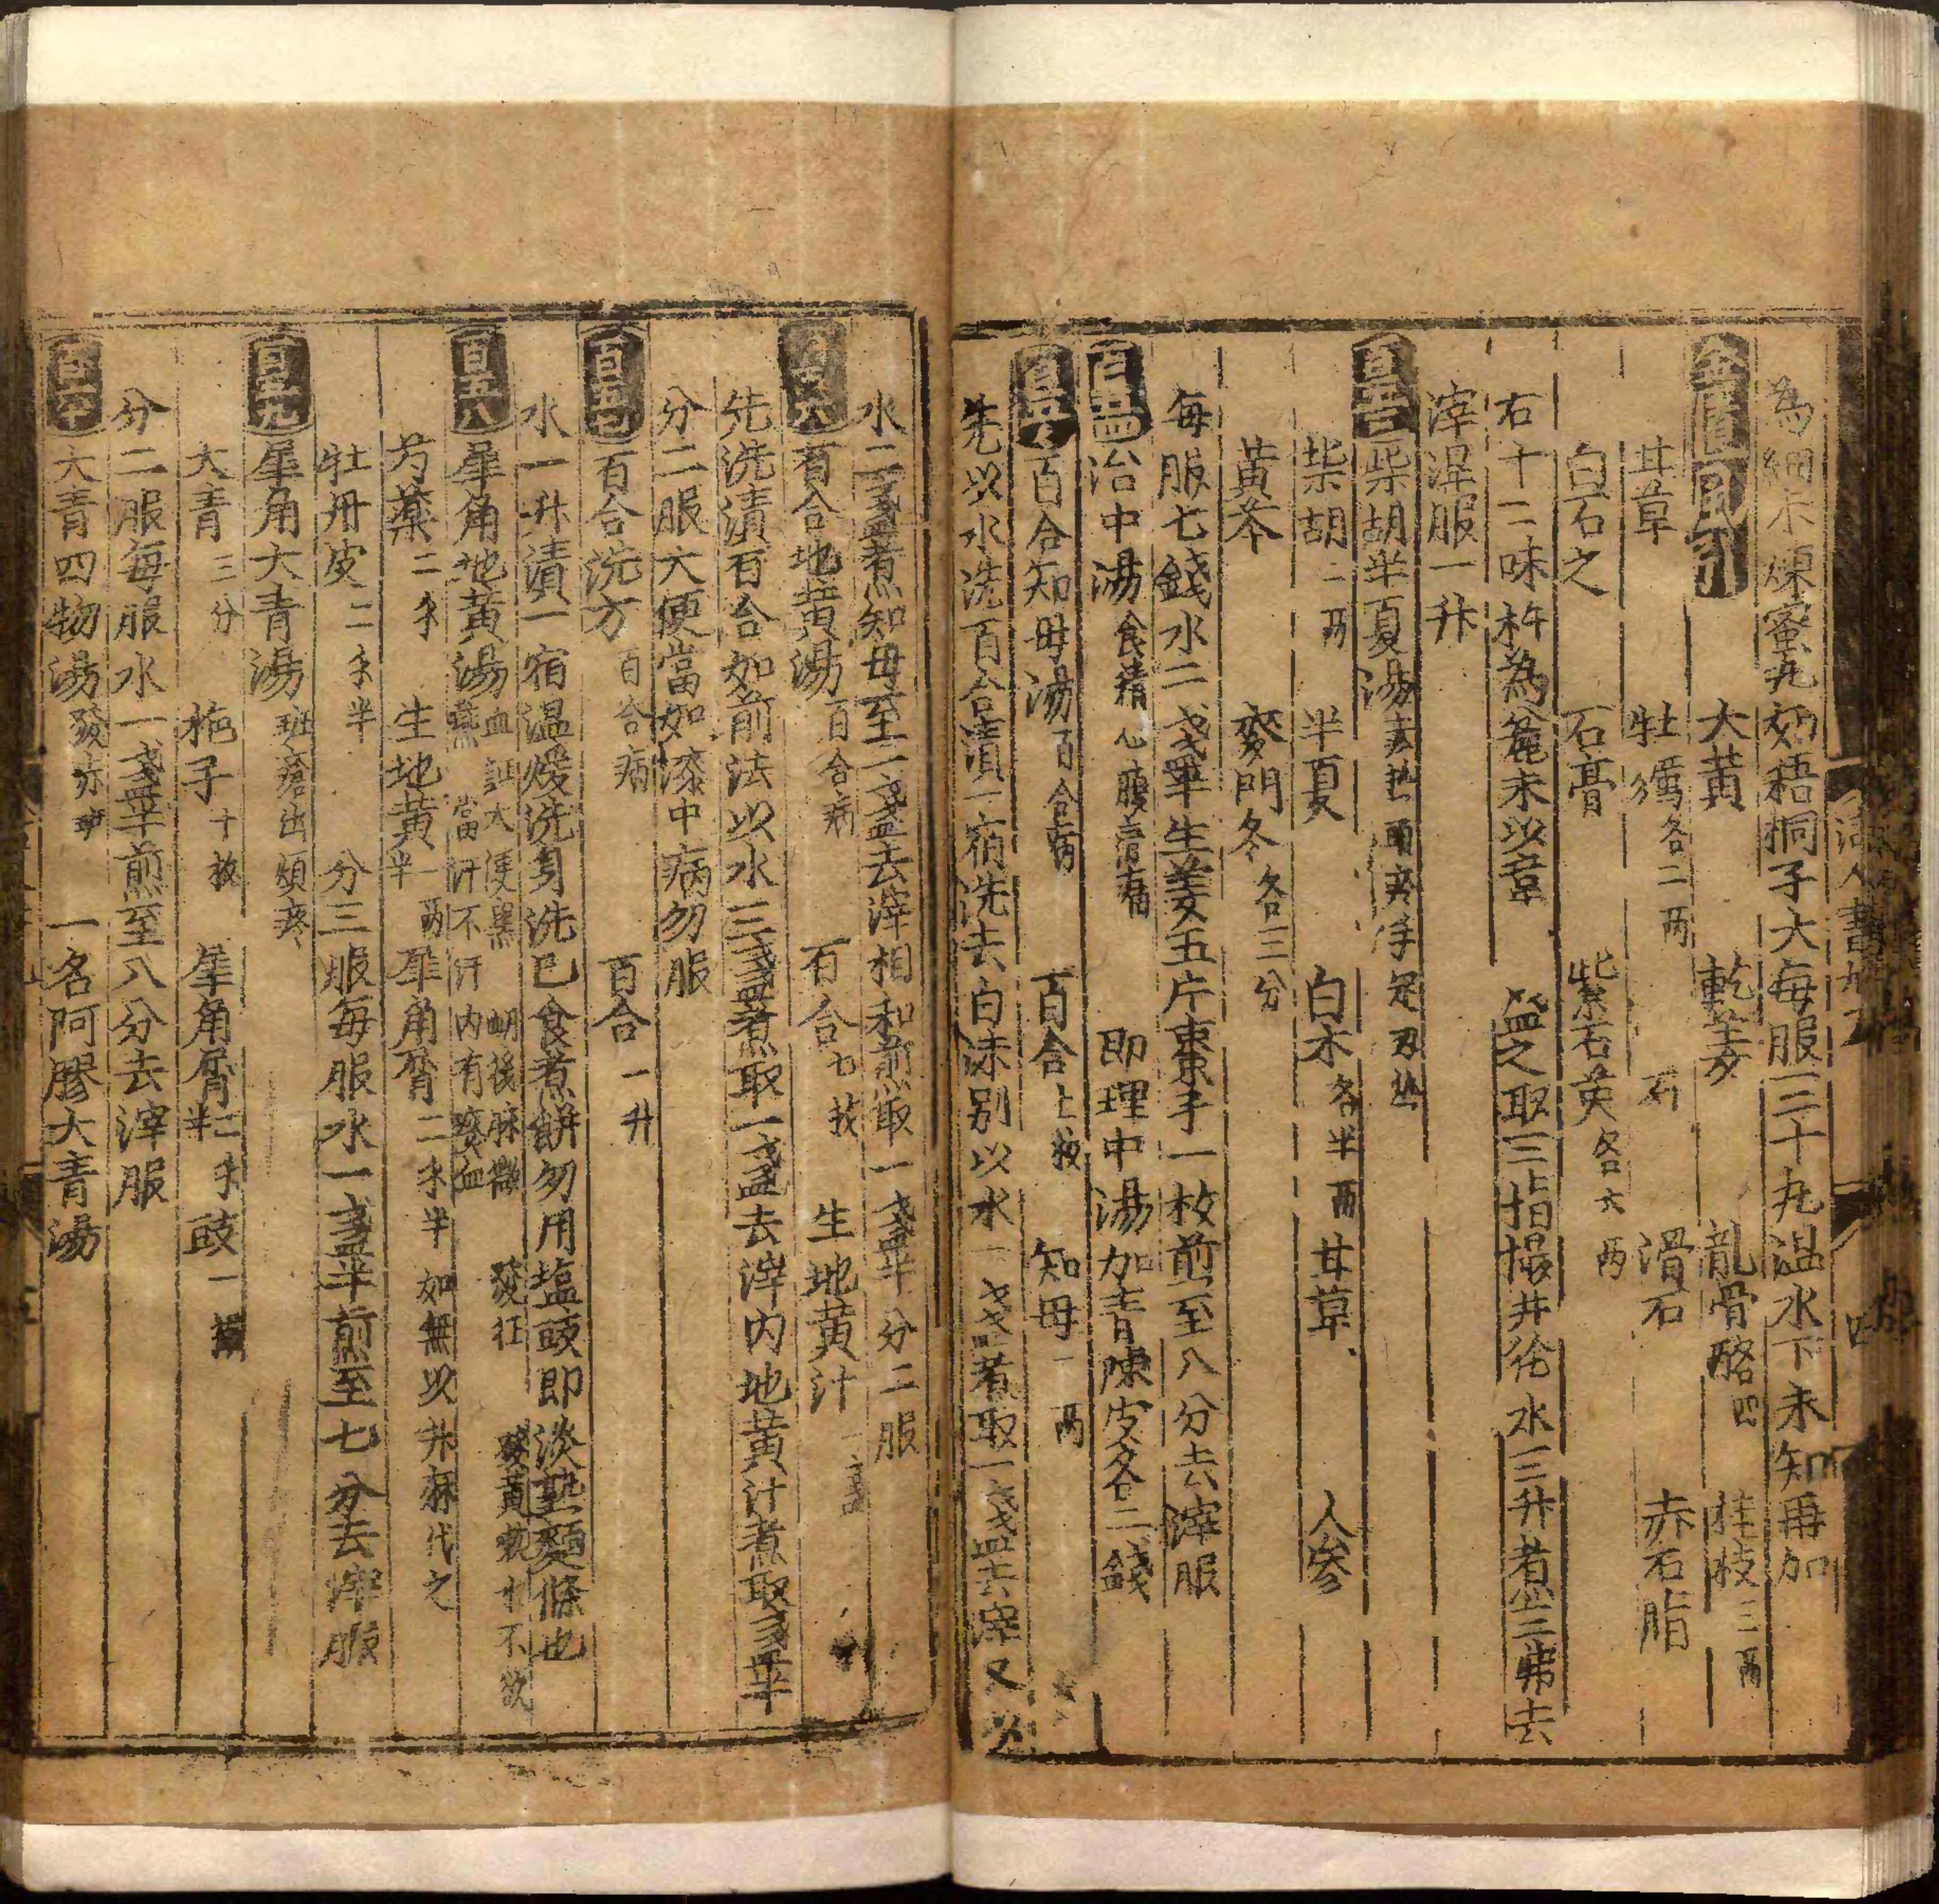 為細末煉蜜丸如梧桐子大每服三十丸温水下未知再加
大黃 乾姜 龍骨酪四 桂枝三兩
甘草 牡蠣各二兩 石 滑石 赤石脂
白石之 石膏 紫石英各六兩
右十二味杵為麄末以韋 盛之取三指撮井花水三升煮 三弗去
滓温服一升
百五三 柴胡半夏湯
柴胡二兩 半夏 白术各半兩 甘草 人參
黃芩 麥門冬各三分
每服七錢水二盞半生姜五片棗子一枚煎至八分去滓服
百五四 治中湯食積心腹 痛 即理中湯加青陳皮各二錢
百五五 百合知母湯百合病 百合七枚 知母一兩
先以水洗百合漬一宿洗去白沫別以水一盞煮取一盞去滓又
水二盞煮知母至一盞去滓相和煎取一盞半分二服
百五六 百合地黃湯百合病 百合七枚 生地黃汁一盞
先洗漬百合如前法以水三盞煮取一盞去滓内地黃汁煮取盞半
分二服大便當如漆中病勿服
百五七 百合洗方百合病 百合一升
水一升漬一宿温煖洗身洗已食煮餅勿用塩豉即淡熟麵條也
百五八 犀角地黃湯血 大便黑 衄後脉微 發狂 發黃 當汗不汗内有瘀血 不欲
芍藥二 生地黃半一兩 犀角屑二 半如無以升麻代之
牡丹皮二 半 分三服每服水一盞半煎至七分去滓服
百五九 犀角大青湯斑瘡出頭疼
大青三分 梔子十枚 犀角屑二 半 豉一撮
分二服每服水一盞半煎至八分去滓服
百六十 大青四物湯發赤斑 一名阿膠大青湯